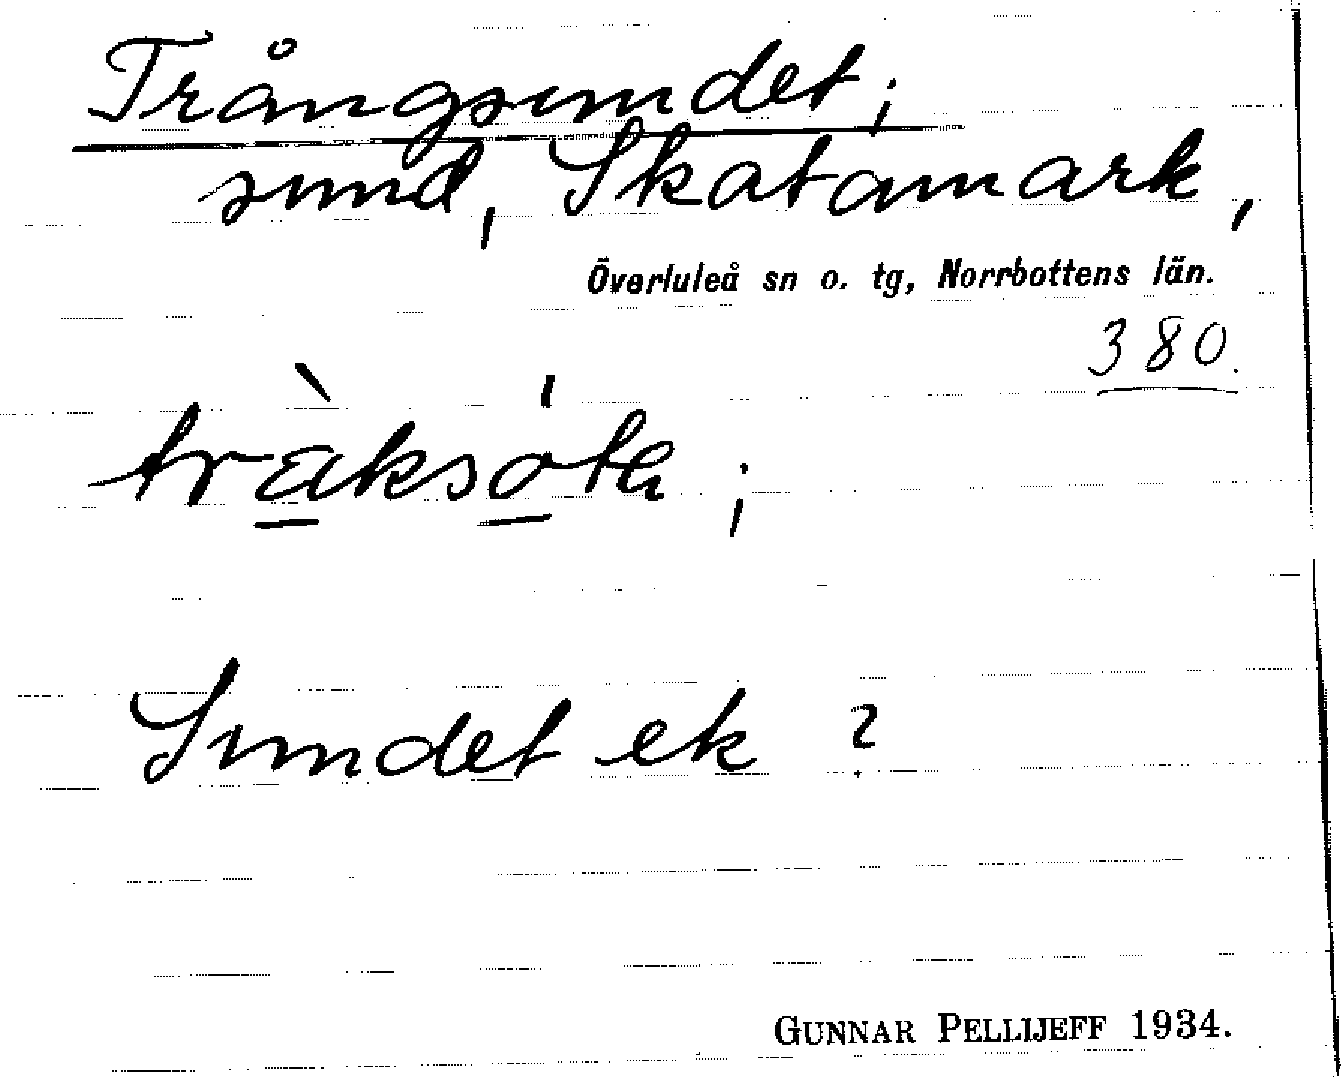 Trångsundet;
sund, Skatamark,
Överluleå sn o. tg, Norrbottens län.
380.
Sundet ek ?
GUNNAR PELLIJEFF 1934.